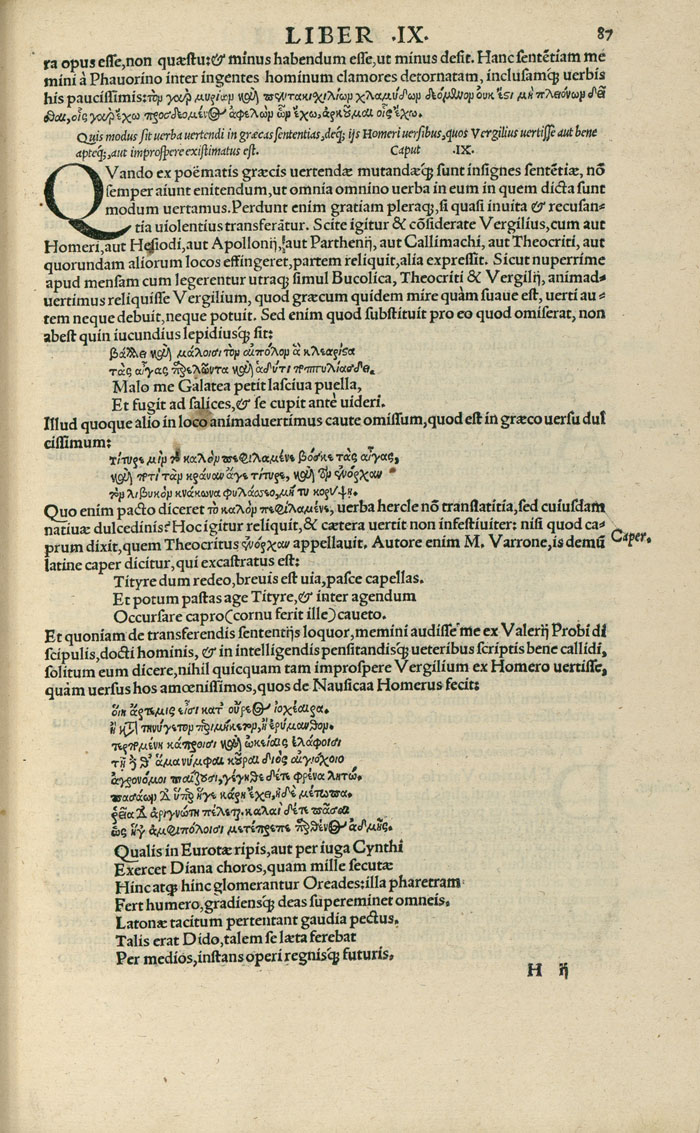 LIBER .IX. 87
ra opus esse, non quæstu: & minus habendum esse, ut minus desit. Hanc sentētiam me
mini à Phauorino inter ingentes hominum clamores detornatam, inclusamq; uerbis
his paucissimis: τὸν γὰρ μυρίων καὶ πεντακιχιλίων χλαμύδων δεόμενον οὐκ ἔστι μὴ πλειόνων δεῖ
θαι, οἷς γὰρ ἔχω προσδεόμενος ἀφελὼν ὧν ἔχω, ἀρκοῦμαι οἷς ἔχω.
Quis modus sit uerba uertendi in græcas sententias, deq; ijs Homeri uersibus, quos Vergilius uertisse aut bene
apteq;, aut improspere existimatus est. Caput .IX.
QVando ex poëmatis græcis uertendæ mutandæq; sunt insignes sentētiæ, nō
semper aiunt enitendum, ut omnia omnino uerba in eum in quem dicta sunt
modum uertamus. Perdunt enim gratiam pleraq;, si quasi inuita & recusan-
tia uiolentius transferātur. Scite igitur & cōsiderate Vergilius, cum aut
Homeri, aut Hesiodi, aut Apollonij, aut Parthenij, aut Callimachi, aut Theocriti, aut
quorundam aliorum locos effingeret, partem reliquit, alia expressit. Sicut nuperrime
apud mensam cum legerentur utraq; simul Bucolica, Theocriti & Vergilij, animad-
uertimus reliquisse Vergilium, quod græcum quidem mire quàm suaue est, uerti au-
tem neque debuit, neque potuit. Sed enim quod substituit pro eo quod omiserat, non
abest quin iucundius lepidiusq; sit:
βάλλει καὶ μάλοισι τὸν αἰπόλον ἁ κλεαρίστα
τὰς αἶγας παρελῶντα καὶ ἁδύ τι ποππυλιάσδει.
Malo me Galatea petit lasciua puella,
Et fugit ad salices, & se cupit antè uideri.
Illud quoque alio in loco animaduertimus caute omissum, quod est in græco uersu dul
cissimum:
τίτυρε μὶν τὸ καλὸν πεφιλαμένε βόσκε τὰς αἶγας,
καὶ ποτὶ τὰν κράναν ἄγε τίτυρε, καὶ τὸν ἐνόρχαν
τὸν λιβυκὸν κνάκωνα φυλάσσεο, μή τυ κορύψῃ.
Quo enim pacto diceret τὸ καλὸν πεφιλαμένε, uerba hercle nō translatitia, sed cuiusdam
natiuæ dulcedinis? Hoc igitur reliquit, & cætera uertit non infestiuiter: nisi quod ca-
prum dixit, quem Theocritus ἐνόρχαν appellauit. Autore enim M. Varrone, is demū Caper.
latine caper dicitur, qui excastratus est:
Tityre dum redeo, breuis est uia, pasce capellas.
Et potum pastas age Tityre, & inter agendum
Occursare capro (cornu ferit ille) caueto.
Et quoniam de transferendis sententijs loquor, memini audisse me ex Valerij Probi di
scipulis, docti hominis, & in intelligendis pensitandisq; ueteribus scriptis bene callidi,
solitum eum dicere, nihil quicquam tam improspere Vergilium ex Homero uertisse,
quàm uersus hos amœnissimos, quos de Nausicaa Homerus fecit:
οἵη ἄρτεμις εἶσι κατ' οὔρεος ἰοχέαιρα.
ἢ κατὰ τηΰγετον περιμήκετον, ἢ ἐρύμανθον.
τερπομένη κάπροισι καὶ ὠκείαις ἐλάφοισι
τῇ δέ θ' ἅμα νύμφαι κοῦραι διὸς αἰγιόχοιο
ἀγρονόμοι παίζουσι, γέγηθε δέ τε φρένα λητώ.
πασάων δ' ὑπὲρ ἥγε κάρη ἔχει, ἠδὲ μέτωπα.
ῥεῖα δ' ἀριγνώτη πέλεται. καλαὶ δέ τε πᾶσαι
ὣς ἥγ' ἀμφιπόλοισι μετέπρεπε παρθένος ἀδμής.
Qualis in Eurotæ ripis, aut per iuga Cynthi
Exercet Diana choros, quam mille secutæ
Hinc atq; hinc glomerantur Oreades: illa pharetram
Fert humero, gradiensq; deas supereminet omneis,
Latonæ tacitum pertentant gaudia pectus.
Talis erat Dido, talem se læta ferebat
Per medios, instans operi regnisq; futuris.
H ij